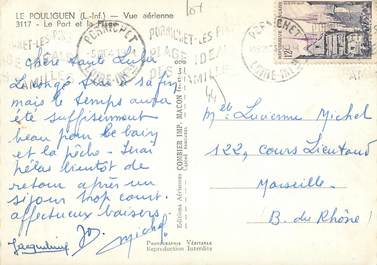 LE POULIGUEN (L.-Inf.) — Vue aérienne
3117 - Le Port et la Plage
PORNICHET
LOIRE-INFre
PORNICHET-LES-PINS
PLAGE IDÉALE
DES FAMILLES
PORNICHET
LOIRE-INFre
12F
Chère tante
Le congé tire à sa fin
mais le temps aura
été suffisamment
beau pour le bain
et la pêche -
hélas bientôt de
retour après un
séjour trop court.
affectueux baisers
Jacqueline Jo Michel
Editions Aériennes COMBIER IMP. MACON
Photographie Véritable
Reproduction Interdite
Melle Lucienne Michel
122, Cours Lieutaud
Marseille
B. du Rhône